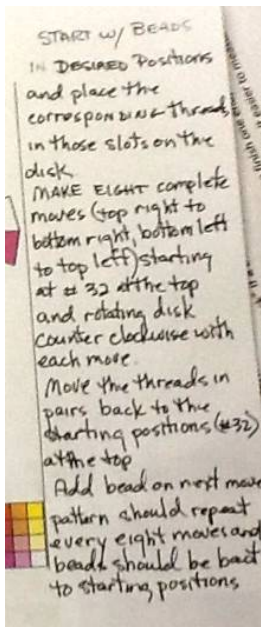 START W/ BEADS
IN DESIRED Positions
and place the
corresponding threads
in those slots on the
disk.
MAKE EIGHT complete
moves (top right to
bottom right, bottom left
to top left) starting
at # 32 at the top
and rotating disk
counter clockwise with
each move.
Move the threads in
pairs back to the
starting positions (#32)
at the top
Add bead on next move
pattern should repeat
every eight moves and
beads should be back
to starting positions
finish one
easier to